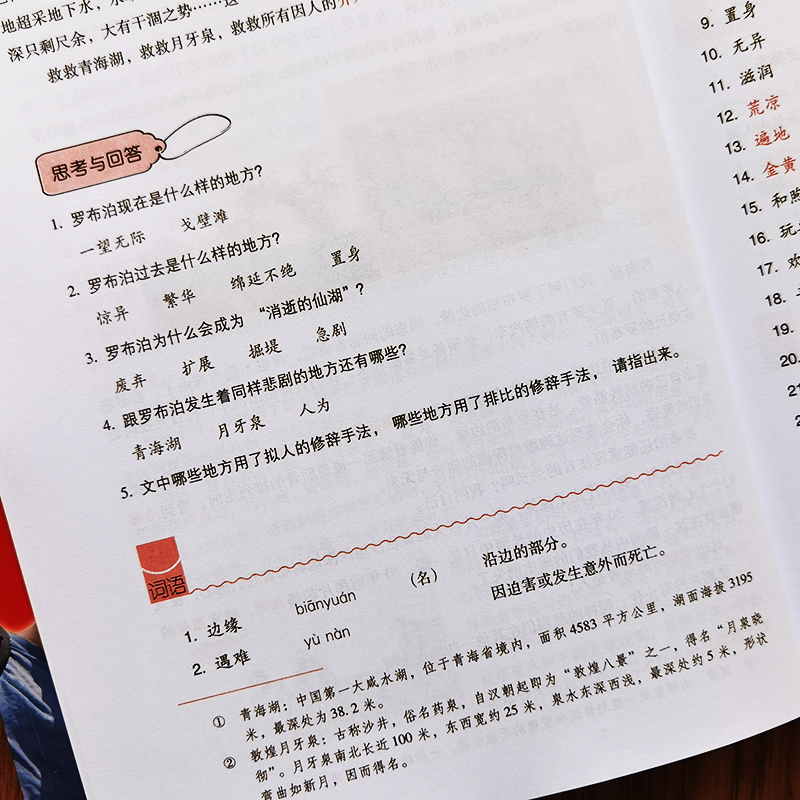 地超采地下水，水
深只剩尺余，大有干涸之势……这
救救青海湖，救救月牙泉，救救所有因人的
思考与回答
1. 罗布泊现在是什么样的地方？
一望无际 戈壁滩
2. 罗布泊过去是什么样的地方？
惊异 繁华 绵延不绝 置身
3. 罗布泊为什么会成为“消逝的仙湖”？
废弃 扩展 掘堤 急剧
4. 跟罗布泊发生着同样悲剧的地方还有哪些？
青海湖 月牙泉 人为
5. 文中哪些地方用了拟人的修辞手法，哪些地方用了排比的修辞手法，请指出来。
词语
1. 边缘 biānyuán （名） 沿边的部分。
2. 遇难 yù nàn 因迫害或发生意外而死亡。
① 青海湖：中国第一大咸水湖，位于青海省境内，面积 4583 平方公里，湖面海拔 3195
米，最深处为 38.2 米。
② 敦煌月牙泉：古称沙井，俗名药泉，自汉朝起即为“敦煌八景”之一，得名“月泉晓
彻”。月牙泉南北长近 100 米，东西宽约 25 米，泉水东深西浅，最深处约 5 米，形状
弯曲如新月，因而得名。
9. 置身
10. 无异
11. 滋润
12. 荒凉
13. 遍地
14. 金黄
15. 和煦
16. 玩
17. 欢
18.
19.
20.
21